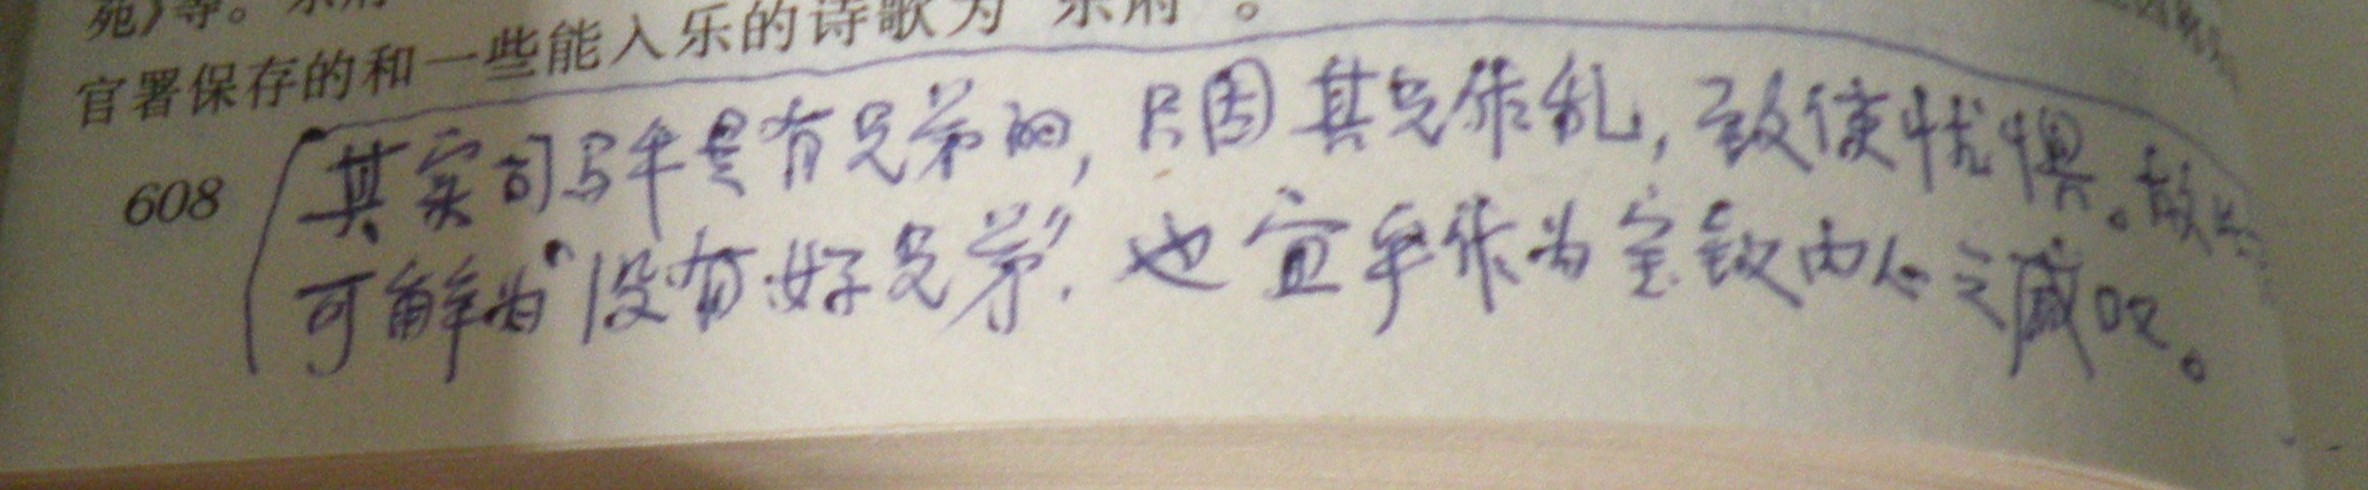 苑》等。乐府
官署保存的和一些能入乐的诗歌为“乐府”。
其实司马牛是有兄弟的,只因其兄作乱,致使忧惧。故此
608
可解为“没有好兄弟”.也宜乎作为宝钗内心之感叹。